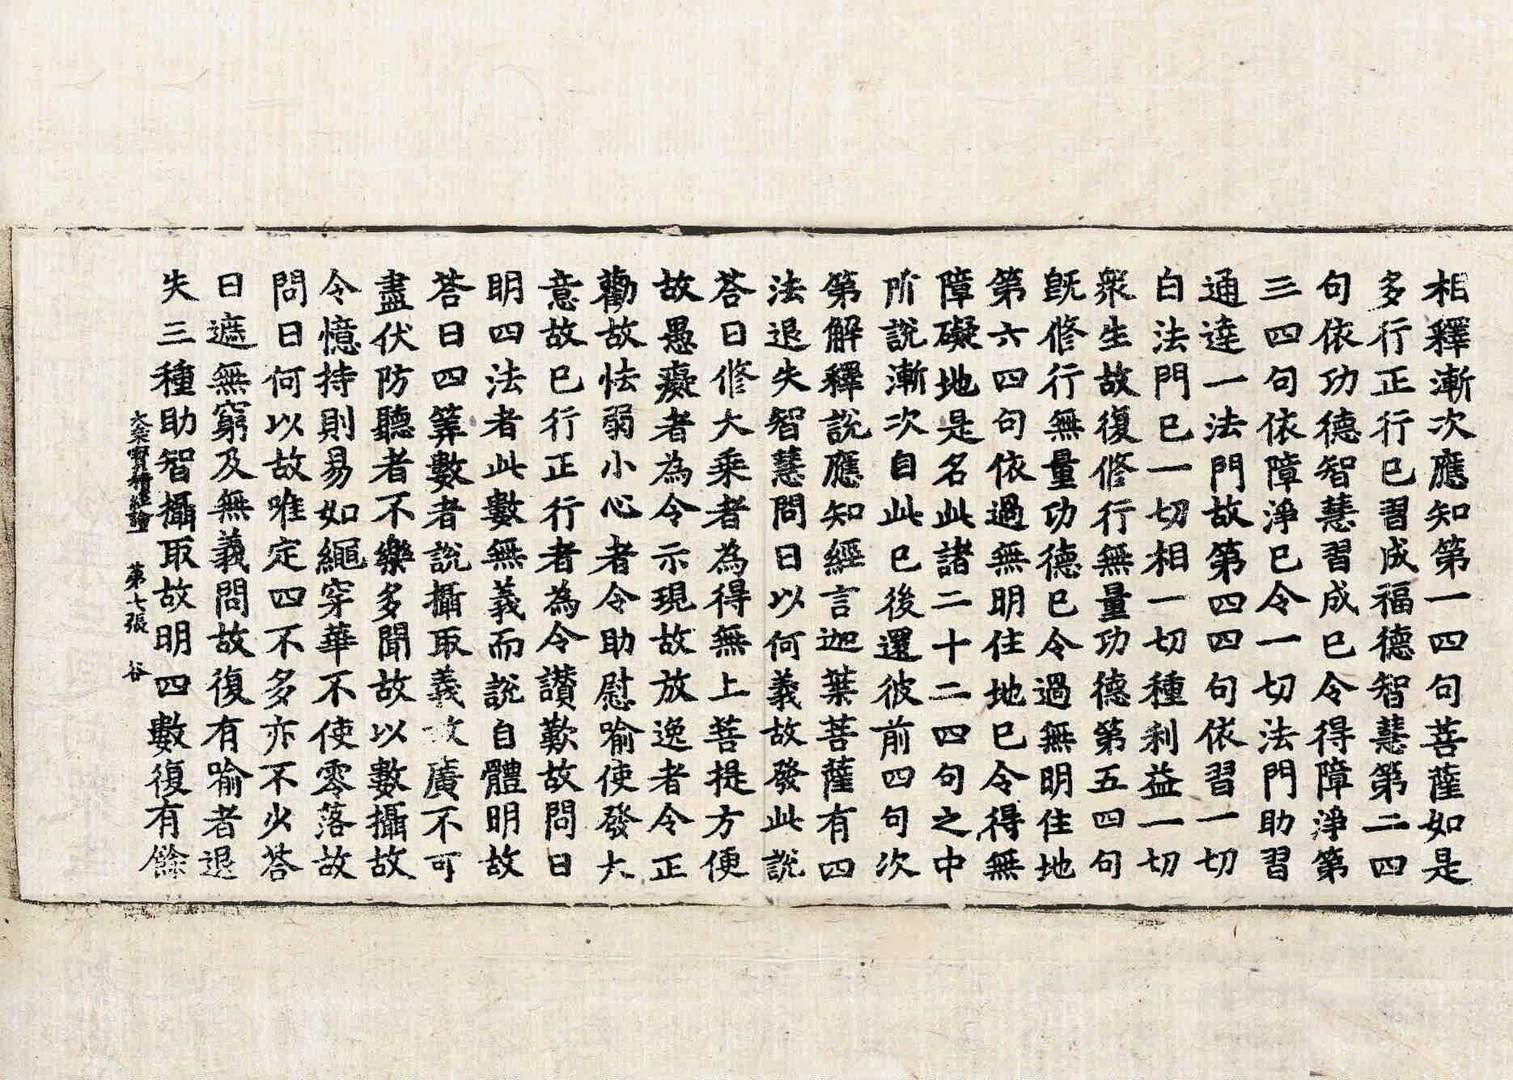 相釋漸次應知第一四句菩薩如是
多行正行已習成福德智慧第二四
句依功德智慧習成已令得障淨第
三四句依障淨已令一切法門助習
通達一法門故第四四句依習一切
白法門已一切相一切種利益一切
衆生故復修行無量功德第五四句
旣修行無量功德已令過無明住地
第六四句依過無明住地已令得無
障礙地是名此諸二十二四句之中
階說漸次自此已後還彼前四句次
第解釋說應知經言迦葉菩薩有四
法退失智慧問曰以何義故發此說
荅曰修大乘者為得無上菩提方便
故愚癡者為令示現故放逸者令正
勸故怯弱小心者令助慰喻使發大
意故已行正行者為令讃歎故問曰
明四法者此數無義而說自體明故
荅曰四筭數者說攝取義故廣不可
盡伏防聽者不樂多聞故以數攝故
令憶持則易如繩穿華不使零落故
問曰何以故唯定四不多亦不少荅
曰遮無窮及無義問故復有喻者退
失三種助智攝取故明四數復有餘
大乘寶積經論一 第七張 谷